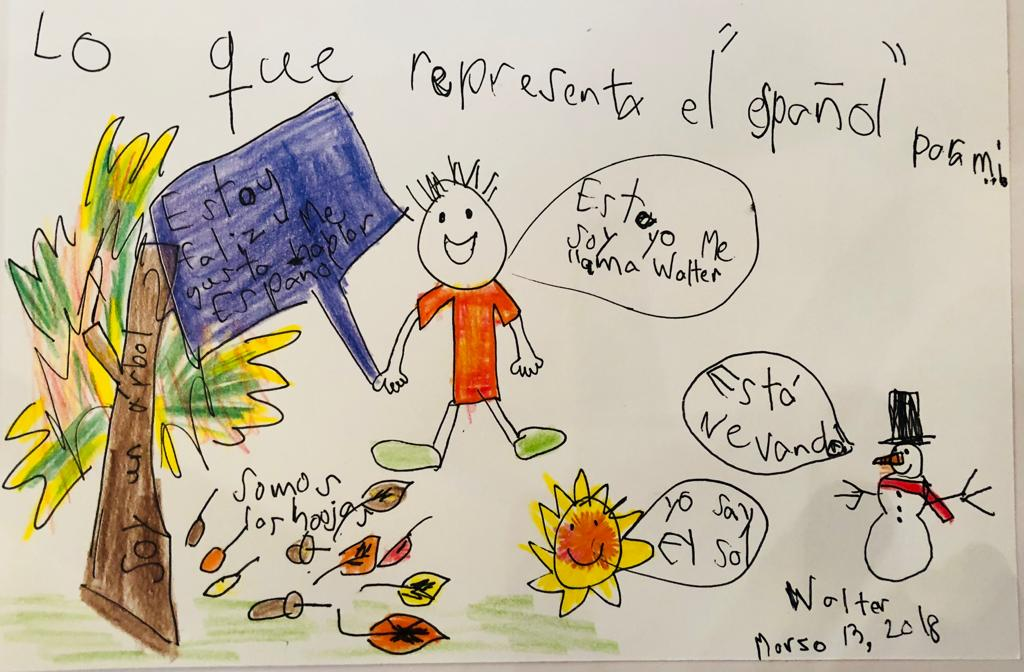 Lo que representa el "español" para mi
Estoy
faliz Me
gusta hablar
Español
Esto
soy yo Me
llama Walter
soy un arbol
Está
Nevando
Somos
las hoojas
yo say
el sol
Walter
Marso 13, 2018